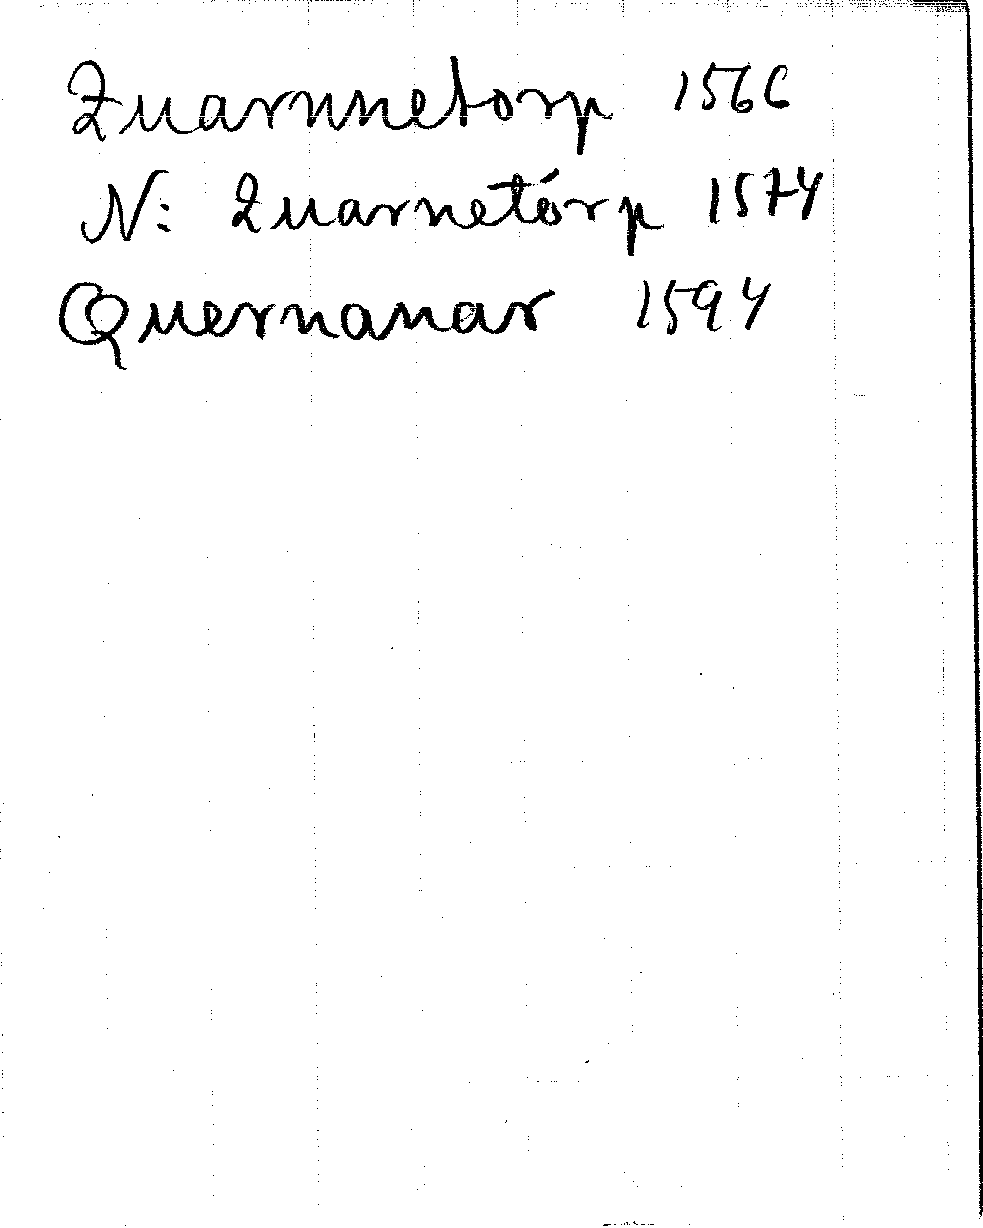 Quarnnetorp 1566
N: Quarnetórp 1574
Quernanar 1594